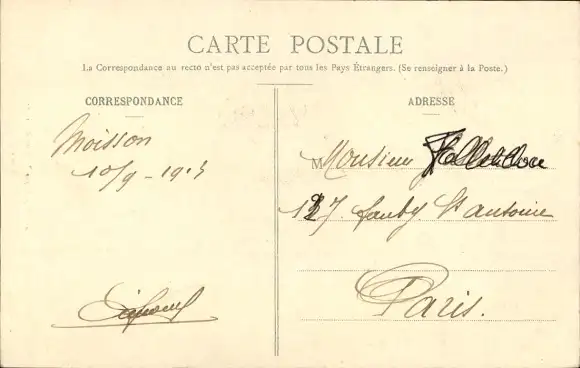 CARTE POSTALE
La Correspondance au recto n'est pas acceptée par tous les Pays Étrangers. (Se renseigner à la Poste.)
CORRESPONDANCE
Moisson
10/9 - 1913
ADRESSE
M Monsieur
127 faubg St antoine
Paris.